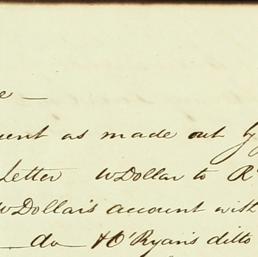 e —
uent as made out by
Letter WDollar to R
WDollar's account with
do &O'Ryan's ditto